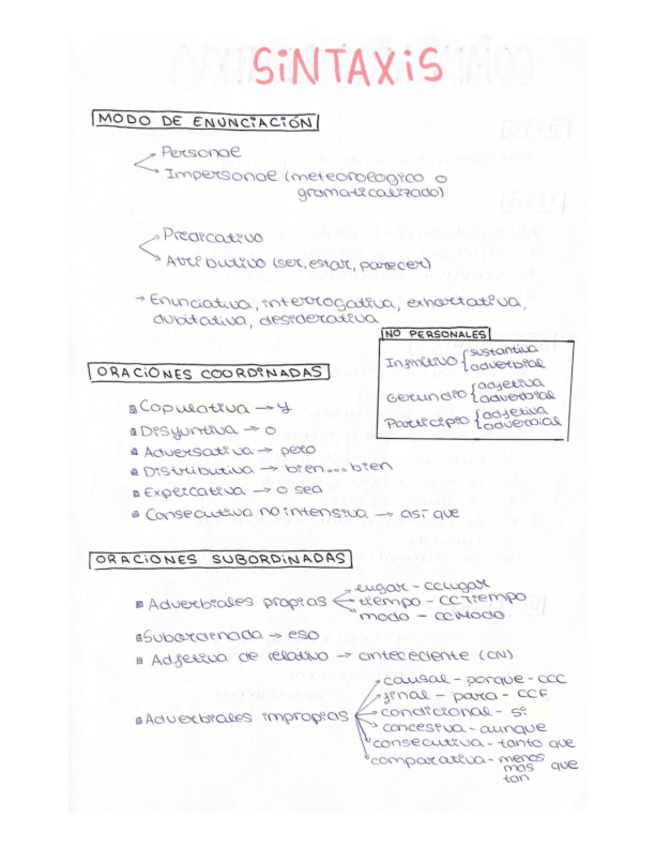 SiNTAXiS
MODO DE ENUNCiACiÓN
Personal
Impersonal (meteorologico o
gramaticalizado)
Predicativo
Atributivo (ser, estar, parecer)
→ Enunciativa, interrogativa, exhortativa,
dubitativa, desiderativa
NO PERSONALES
Infinitivo { sustantiva
adverbial
Gerundio { adjetiva
adverbial
Participio { adjetiva
adverbial
ORACiONES COORDiNADAS
Copulativa → y
Disyuntiva → o
Adversativa → pero
Distributiva → bien...bien
Explicativa → o sea
Consecutiva no intensiva → así que
ORACiONES SUBORDiNADAS
Adverbiales propias
lugar - CCLugar
tiempo - CCTiempo
modo - CCModo
Subordinada → eso
Adjetiva de relativo → antecedente (CN)
Adverbiales impropias
causal - porque - CCC
final - para - CCF
condicional - si
concesiva - aunque
consecutiva - tanto que
comparativa - menos
mas que
tan